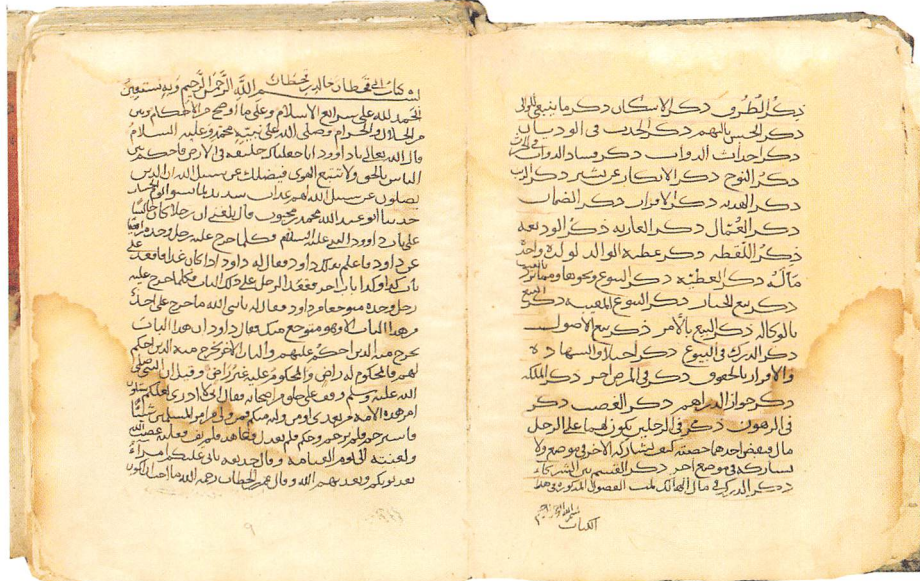 ذكر الطرق ذكر الاسكان ذكر ما ينبغي
ذكر الحبس بالتهم ذكر الحدث في الاوديان
ذكر احداث الدواب ذكر فساد الدواب
ذكر النوح ذكر الانكار عن نشر ذكر
ذكر الهديه ذكر الاقرار ذكر الضمان
ذكر العُمّال ذكر العاريه ذكر الوديعه
ذكر اللقطه ذكر عطية الوالد لولده واخذ
مَالَهُ ذكر العطيّه ذكر البيوع ونحوها
ذكر بيع الخيار ذكر البيوع المغيبه ذكر البيع
بالوكاله ذكر البيع بالأمر ذكر بيع الاصول
ذكر الدرك في البيوع ذكر احيا والشهاده
والاقرار بالحقوق ذكر في المرض اخر ذكر الملكه
ذكر جواز الدراهم ذكر الغصب ذكر
في الرهون ذكر في الرجلين يكون لهما على الرجل
مال فيقبض احدهما حصته كيف يشاركه الاخر في موضع ولا
يشاركه في موضع اخر ذكر القسم بين الشركاء
ذكر الدرك في مال الهالك تمت الفصول المذكوره في هذا
الكتاب
كتاب ابي قحطان خالد بن قحطان
بسم الله الرحمن الرحيم وبه نستعين
الحمد لله على شرايع الاسلام وعلى ما اوضح من الاحكام وبين
من الحلال والحرام وصلى الله على نبيه محمد وعليه السلام
قال الله تعالى ياداوود انا جعلناك خليفه في الارض فاحكم بين
الناس بالحق ولا تتبع الهوى فيضلك عن سبيل الله ان الذين
يضلون عن سبيل الله لهم عذاب شديد بما نسوا يوم الحساب
حدثنا ابو عبد الله محمد بن محبوب قال بلغني ان رجلا كان جالسًا
على باب داوود النبي عليه السلام وكلما خرج عليه رجل وحده
عن داود فاعلم بذلك داود فقال له داود اذا كان غدا فاقعد على
باب كذا وكذا باب اخر فقعد الرجل على ذلك الباب فكلما خرج عليه
رجل وحده متوجعا من داود فقال له يا نبي الله ما خرج علي احد
من هذا الباب الا وهو متوجع منك فقال داود ان هذا الباب
يخرج منه الذين احكم عليهم والباب الاخر يخرج منه الذين احكم
لهم فالمحكوم له راضٍ والمحكوم عليه غير راض وقيل ان النبي صلى
الله عليه وسلم وقف على حلق من اصحابه فقال اني لا ادري لعلكم ستلون
امر هذه الامه من بعدي او من وليه منكم فمن ولي من امر المسلمين شيئًا
فاسترحم فلم يرحم وحكم فلم يعدل وعاهد فلم يف فعليه غضب الله
ولعنته الى يوم القيامه وقال حذيفه ياتي عليكم امراء
يعذبونكم ويعذبهم الله وقال عمر بن الخطاب رحمه الله ما احب ان اكون
٩